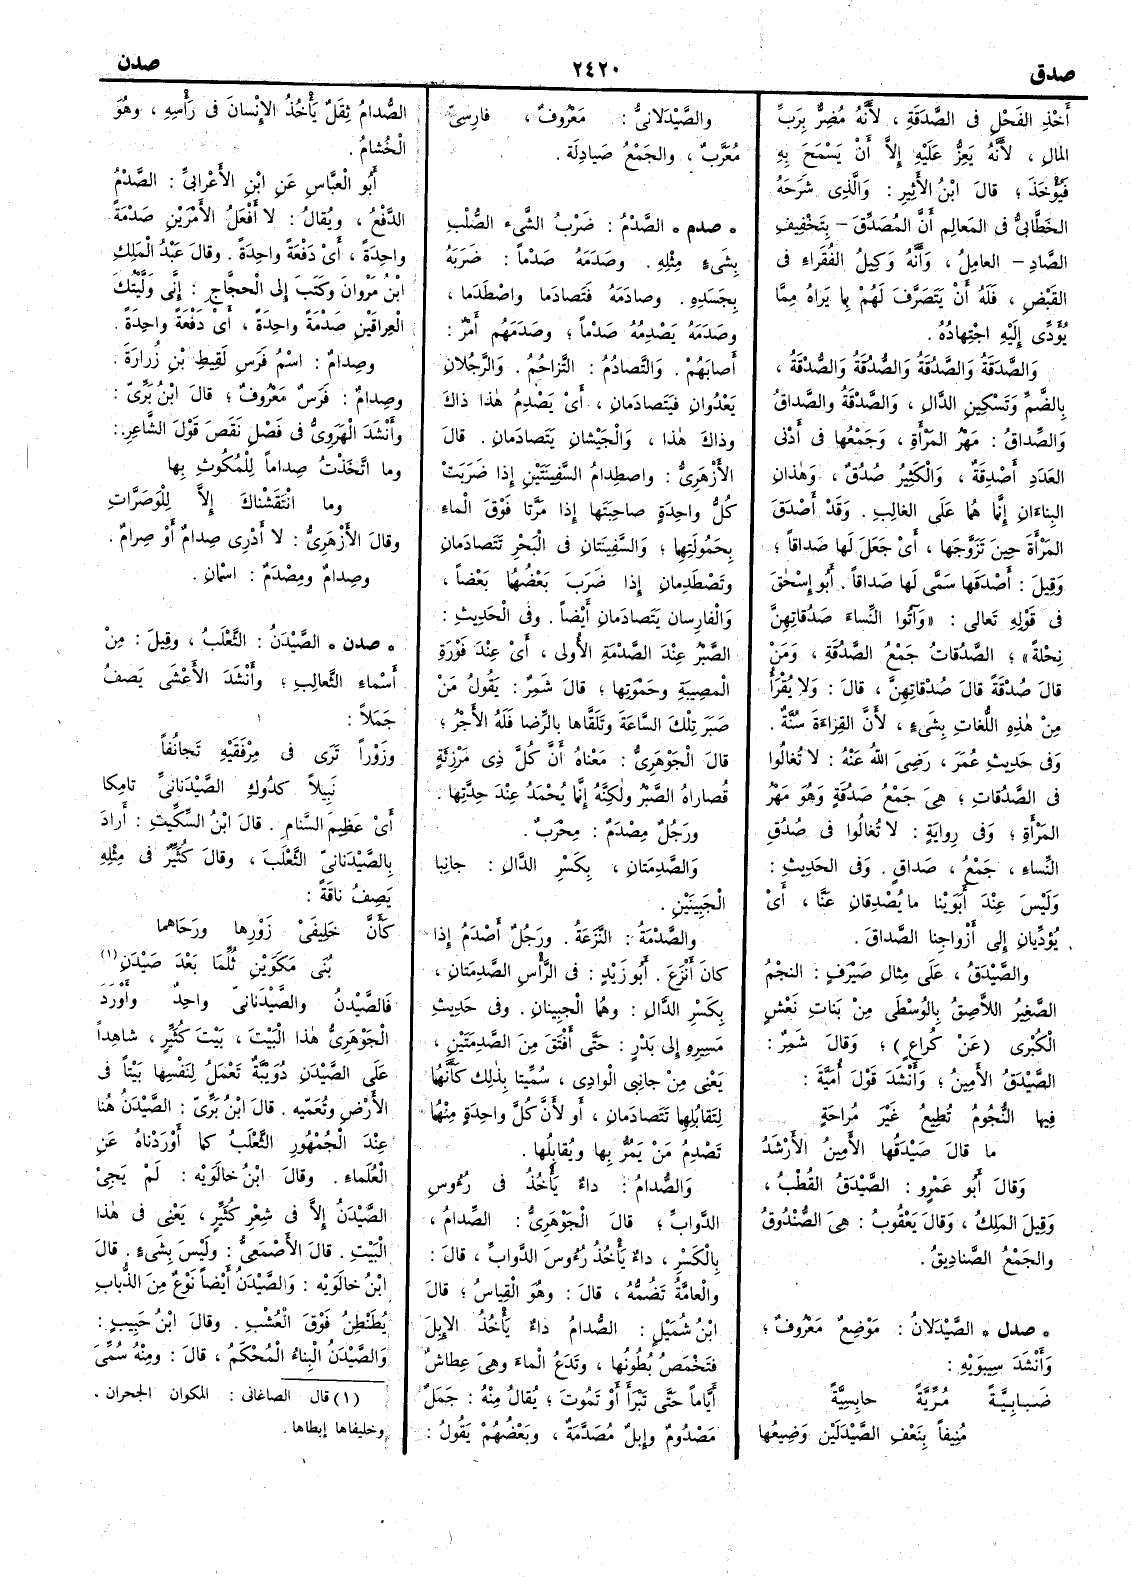 صدق
٢٤٢٠
صدن
أَخْذِ الفَحْلِ فى الصَّدَقَةِ ، لأَنَّهُ مُضِرٌّ بِرَبِّ
المالِ ، لأَنَّهُ يَعِزُّ عَلَيْهِ إِلاَّ أَنْ يَسْمَحَ بِهِ
فَيُؤْخَذَ ؛ قالَ ابْنُ الأَثِيرِ : وَالَّذِى شَرَحَهُ
الخَطَّابِىُّ فى المَعالِمِ أَنَّ المُصَدِّقَ – بِتَخْفِيفِ
الصَّادِ – العامِلُ ، وَأَنَّهُ وَكِيلُ الفُقَراءِ فى
القَبْضِ ، فَلَهُ أَنْ يَتَصَرَّفَ لَهُمْ بِما يَراهُ مِمَّا
يُؤَدِّى إِلَيْهِ اجْتِهادُهُ .
وَالصَّدَقَةُ وَالصَّدُقَةُ وَالصُّدُقَةُ وَالصُّدْقَةُ ،
بِالضَّمِّ وَتَسْكِينِ الدَّالِ ، وَالصَّدْقَةُ وَالصَّداقُ
وَالصِّداقُ : مَهْرُ المَرْأَةِ ، وَجَمْعُها فى أَدْنَى
العَدَدِ أَصْدِقَةٌ ، وَالْكَثِيرُ صُدُقٌ ، وَهٰذانِ
البِناءَانِ إِنَّما هُما عَلَى الغالِبِ . وَقَدْ أَصْدَقَ
المَرْأَةَ حِينَ تَزَوَّجَها ، أَىْ جَعَلَ لَها صَداقاً ؛
وَقِيلَ : أَصْدَقَها سَمَّى لَها صَداقاً . أَبُو إِسْحٰقَ
فى قَوْلِهِ تَعالى : «وَآتُوا النِّساءَ صَدُقاتِهِنَّ
نِحْلَةً» ؛ الصَّدُقاتُ جَمْعُ الصَّدُقَةِ ، وَمَنْ
قالَ صُدْقَةً قالَ صُدْقاتِهِنَّ ، قالَ : وَلا يُقْرَأُ
مِنْ هٰذِهِ اللُّغاتِ بِشَىْءٍ ، لأَنَّ القِرَاءَةَ سُنَّةٌ .
وَفى حَدِيثِ عُمَرَ ، رَضِىَ اللهُ عَنْهُ : لا تُغالُوا
فى الصَّدُقاتِ ؛ هِىَ جَمْعُ صَدُقَةٍ وَهُوَ مَهْرُ
المَرْأَةِ ؛ وَفى رِوايَةٍ : لا تُغالُوا فى صُدُقِ
النِّساءِ ، جَمْعُ ، صَداقٍ . وَفى الحَدِيثِ :
وَلَيْسَ عِنْدَ أَبَوَيْنا ما يُصْدِقانِ عَنَّا ، أَىْ
يُؤَدِّيانِ إِلى أَزْواجِنا الصَّداقَ .
والصَّيْدَقُ ، عَلَى مِثالِ صَيْرَفٍ : النجْمُ
الصَّغِيرُ اللاَّصِقُ بِالْوُسْطَى مِنْ بَناتِ نَعْشٍ
الْكُبْرَى (عَنْ كُراعٍ) ؛ وَقالَ شَمِرٌ :
الصَّيْدَقُ الأَمِينُ ؛ وَأَنْشَدَ قَوْلَ أُمَيَّةَ :
فِيها النُّجُومُ تُطِيعُ غَيْرَ مُراحَةٍ
ما قالَ صَيْدَقُها الأَمِينُ الأَرْشَدُ
وَقالَ أَبُو عَمْرٍو : الصَّيْدَقُ القُطْبُ ،
وَقِيلَ المَلِكُ ، وَقالَ يَعْقُوبُ : هِىَ الصُّنْدُوقُ
والجَمْعُ الصَّنادِيقُ .
• صدل • الصَّيْدَلانُ : مَوْضِعٌ مَعْرُوفٌ ؛
وَأَنْشَدَ سِيبَوَيْهِ :
ضَبابِيَّةٌ مُرِّيَّةٌ حابِسِيَّةٌ
مُنِيفاً بِنَعْفِ الصَّيْدَلَيْنِ وَضِيعُها
والصَّيْدَلانىُّ : مَعْرُوفٌ ، فارِسىٌّ
مُعَرَّبٌ ، والجَمْعُ صَيادِلَة .
• صدم • الصَّدْمُ : ضَرْبُ الشَّىْءِ الصُّلْبِ
بِشَىْءٍ مِثْلِهِ . وصَدَمَهُ صَدْماً : ضَرَبَهُ
بِجَسَدِهِ . وصادَمَهُ فَتَصادَما واصْطَدَما ،
وصَدَمَهُ يَصْدِمُهُ صَدْماً ؛ وصَدَمَهُم أَمْرٌ :
أَصابَهُمْ . وَالتَّصادُمُ : التَّزاحُمُ . وَالرَّجُلانِ
يَعْدُوانِ فَيَتَصادَمانِ ، أَىْ يَصْدِمُ هٰذا ذاكَ
وذاكَ هٰذا ، وَالْجَيْشانِ يَتَصادَمانِ . قالَ
الأَزْهَرِىُّ : واصطِدامُ السَّفِينَتَيْنِ إِذا ضَرَبَتْ
كُلُّ واحِدَةٍ صاحِبَتَها إِذا مَرَّتا فَوْقَ الماءِ
بِحَمُولَتِها ؛ وَالسَّفِينَتانِ فى الْبَحْرِ تَتَصادَمانِ
وتَصْطَدِمانِ إِذا ضَرَبَ بَعْضُها بَعْضاً ،
وَالْفارِسانِ يَتَصادَمانِ أَيْضاً . وَفى الْحَدِيثِ :
الصَّبْرُ عِنْدَ الصَّدْمَةِ الأُولَى ، أَىْ عِنْدَ فَوْرَةِ
الْمصِيبَةِ وحَمْوَتِها ؛ قالَ شَمِرٌ : يَقُولُ مَنْ
صَبَرَ تِلْكَ السَّاعَةَ وتَلَقَّاها بِالرِّضا فَلَهُ الأَجْرُ ؛
قالَ الْجَوْهَرِىُّ : مَعْناهُ أَنَّ كُلَّ ذِى مَرْزِئَةٍ
قُصاراهُ الصَّبْرُ ولٰكِنَّهُ إِنَّما يُحْمَدُ عِنْدَ حِدَّتِها .
ورَجُلٌ مِصْدَمٌ : مِحْرَبٌ .
وَالصَّدِمَتانِ ، بِكَسْرِ الدَّالِ : جانِبا
الْجَبِينَيْنِ .
والصَّدْمَةُ : النَّزَعَةُ . ورَجُلٌ أَصْدَمُ إِذا
كانَ أَنْزَعَ . أَبُو زَيْدٍ : فى الرَّأْسِ الصَّدِمَتانِ ،
بِكَسْرِ الدَّالِ : وهُما الْجَبِينانِ . وفى حَدِيثِ
مَسِيرِهِ إِلى بَدْرٍ : حَتَّى أَفْتَقَ مِنَ الصَّدِمَتَيْنِ ،
يَعْنِى مِنْ جانِبِى الْوادِى ، سُمِّيتا بِذٰلِكَ كَأَنَّهُما
لِتَقابُلِها تَتَصادَمانِ ، أَو لأَنَّ كُلَّ واحِدَةٍ مِنْهُما
تَصْدِمُ مَنْ يَمُرُّ بِها ويُقابِلُها .
وَالصُّدامُ : داءٌ يَأْخُذُ فى رُءُوسِ
الدَّوابِّ ؛ قالَ الْجَوْهَرِىُّ : الصِّدامُ ،
بِالْكَسْرِ ، داءٌ يَأْخُذُ رُءُوسَ الدَّوابِّ ، قالَ :
والْعامَّةُ تَضُمُّهُ ، قالَ : وهُوَ الْقِياسُ ؛ قالَ
ابْنُ شُمَيْلٍ : الصُّدامُ داءٌ يَأْخُذُ الإِبِلَ
فَتَخْمَصُ بُطُونُها ، وتَدَعُ الْماءَ وهِىَ عِطاشٌ
أَيَّاماً حَتَّى تَبْرَأَ أَوْ تَمُوتَ ؛ يُقالُ مِنْهُ : جَمَلٌ
مَصْدُومٌ وإِبِلٌ مُصَدَّمَةٌ ، وبَعْضُهُمْ يَقُولُ :
الصُّدامُ ثِقَلٌ يَأْخُذُ الإِنْسانَ فى رَأْسِهِ ، وهُوَ
الْخُشامُ .
أَبُو الْعبَّاسِ عَنِ ابْنِ الأَعْرابىِّ : الصَّدْمُ
الدَّفْعُ ، ويُقالُ : لا أَفْعَلُ الأَمْرَيْنِ صَدْمَةً
واحِدَةً ، أَىْ دَفْعَةً واحِدَةً . وقالَ عَبْدُ الْمَلِكِ
ابْنُ مَرْوانَ وكَتَبَ إِلى الْحجَّاجِ : إِنِّى وَلَّيْتُكَ
الْعِراقَيْنِ صَدْمَةً واحِدَةً ، أَىْ دَفْعَةً واحِدَةً .
وصِدامٌ : اسْمُ فَرَسِ لَقِيطِ بْنِ زُرارَةَ .
وصِدامٌ : فَرَسٌ مَعْرُوفٌ ؛ قالَ ابْنُ بَرِّىّ :
وأَنْشَدَ الْهَرَوِىُّ فى فَصْلِ نَقَصَ قَوْلَ الشَّاعِرِ :
وما اتَّخَذْتُ صِداماً لِلْمُكُوثِ بِها
وما انْتَقَشْناكَ إِلاَّ لِلْوَصَرَّاتِ
وقالَ الأَزْهَرِىُّ : لا أَدْرِى صِدامٌ أَوْ صِرامٌ .
وصِدامٌ ومِصْدَمٌ : اسْمانِ .
• صدن • الصَّيْدَنُ : الثَّعْلَبُ ، وقِيلَ : مِنْ
أَسْماءِ الثَّعالِبِ ؛ وأَنْشَدَ الأَعْشَى يَصِفُ
جَمَلاً :
وزَوْراً تَرَى فى مِرْفَقَيْهِ تَجانُفاً
نَبِيلاً كدُوكِ الصَّيْدَنانىِّ تامِكا
أَىْ عَظِيمَ السَّنامِ . قالَ ابْنُ السِّكِّيتِ : أَرادَ
بِالصَّيْدَنانىِّ الثَّعْلَبَ ، وقالَ كُثَيِّرٌ فى مِثْلِهِ
يَصِفُ ناقَةً :
كَأَنَّ خَلِيفَىْ زَوْرِها ورَحَاهُما
بُنَى مَكَوَيْنِ ثُلِّما بَعْدَ صَيْدَنِ (١)
فَالصَّيْدَنُ والصَّيْدَنانىّ واحِدٌ وأَوْرَدَ
الْجَوْهَرِىُّ هٰذا الْبَيْتَ ، بَيْتَ كُثَيِّرٍ ، شاهِداً
عَلَى الصَّيْدَنِ دُوَيْبَّةٌ تَعْمَلُ لِنَفْسِها بَيْتاً فى
الأَرْضِ وتُعَمِّيهِ . قالَ ابْنُ بَرِّىّ : الصَّيْدَنُ هُنا
عِنْدَ الْجُمْهُورِ الثَّعْلَبُ كما أَوْرَدْناهُ عَنِ
الْعُلَماءِ . وقالَ ابْنُ خالَوَيْهِ : لَمْ يَجِئْ
الصَّيْدَنُ إِلاَّ فى شِعْرِ كُثَيِّرٍ ، يَعْنِى فى هٰذا
الْبَيْتِ . قالَ الأَصْمَعِىُّ : ولَيْسَ بِشَىْءٍ . قالَ
ابْنُ خالَوَيْه : وَالصَّيْدَنُ أَيْضاً نَوْعٌ مِنَ الذُّبابِ
يُطَنْطِنُ فَوْقَ الْعُشْبِ . وقالَ ابْنُ حَبِيبٍ :
وَالصَّيْدَنُ الْبِناءُ الْمُحْكَمُ ، قالَ : ومِنْهُ سُمِّىَ
(١) قال الصاغانى : المكوان الجحران .
وخليفاها إبطاها .